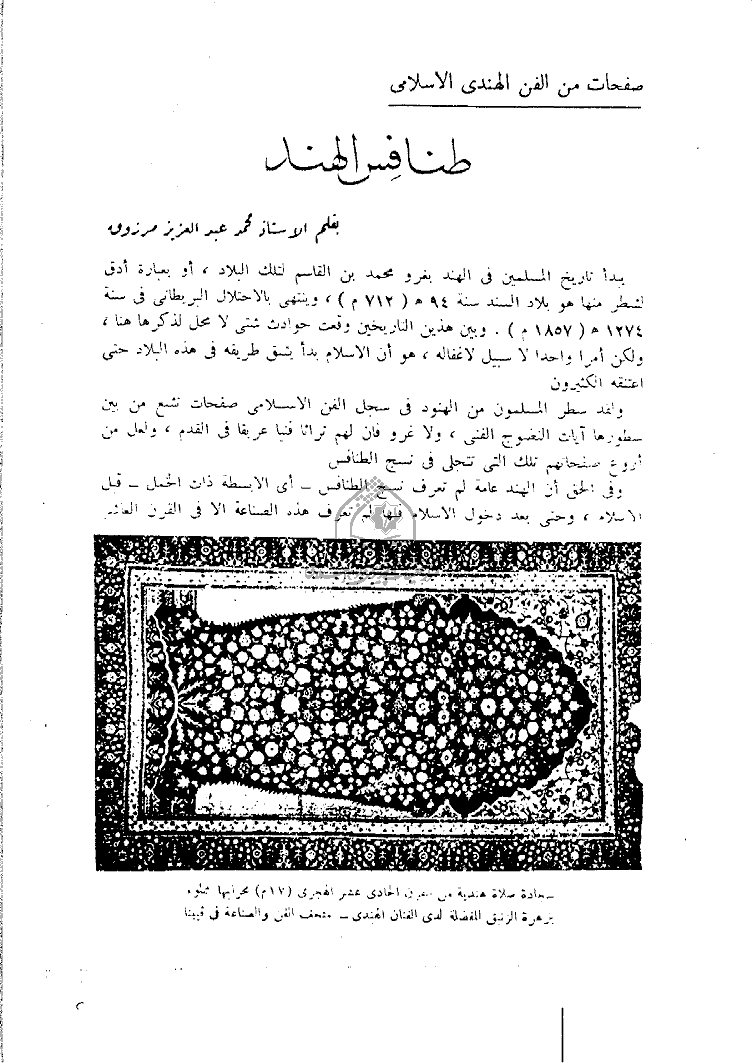 صفحات من الفن الهندى الاسلامى
طنافس الهند
بقلم الاستاذ محمد عبد العزيز مرزوق
يبدأ تاريخ المسلمين فى الهند بغزو محمد بن القاسم لتلك البلاد ، أو بعبارة أدق
لشطر منها هو بلاد السند سنة ٩٤ ﻫ ( ٧١٢ م ) ، وينتهى بالاحتلال البريطانى فى سنة
١٢٧٤ ﻫ ( ١٨٥٧ م ) . وبين هذين التاريخين وقعت حوادث شتى لا محل لذكرها هنا ،
ولكن أمرا واحدا لا سبيل لاغفاله ، هو أن الاسلام بدأ يشق طريقه فى هذه البلاد حتى
اعتنقه الكثيرون
ولقد سطر المسلمون من الهنود فى سجل الفن الاسلامى صفحات تشع من بين
سطورها آيات النضوج الفنى ، ولا غرو فان لهم تراثا فنيا عريقا فى القدم ، ولعل من
أروع صفحاتهم تلك التى تتجلى فى نسج الطنافس
وفى الحق أن الهند عامة لم تعرف نسج الطنافس – أى الابسطة ذات الخمل – قبل
الاسلام ، وحتى بعد دخول الاسلام فلها لم تعرف هذه الصناعة الا فى القرن العاشر
سجادة صلاة هندية من القرن الحادى عشر الهجرى (١٧م) محرابها مملوء
بزهرة الزنبق المفضلة لدى الفنان الهندى – متحف الفن والصناعة فى ڤيينا